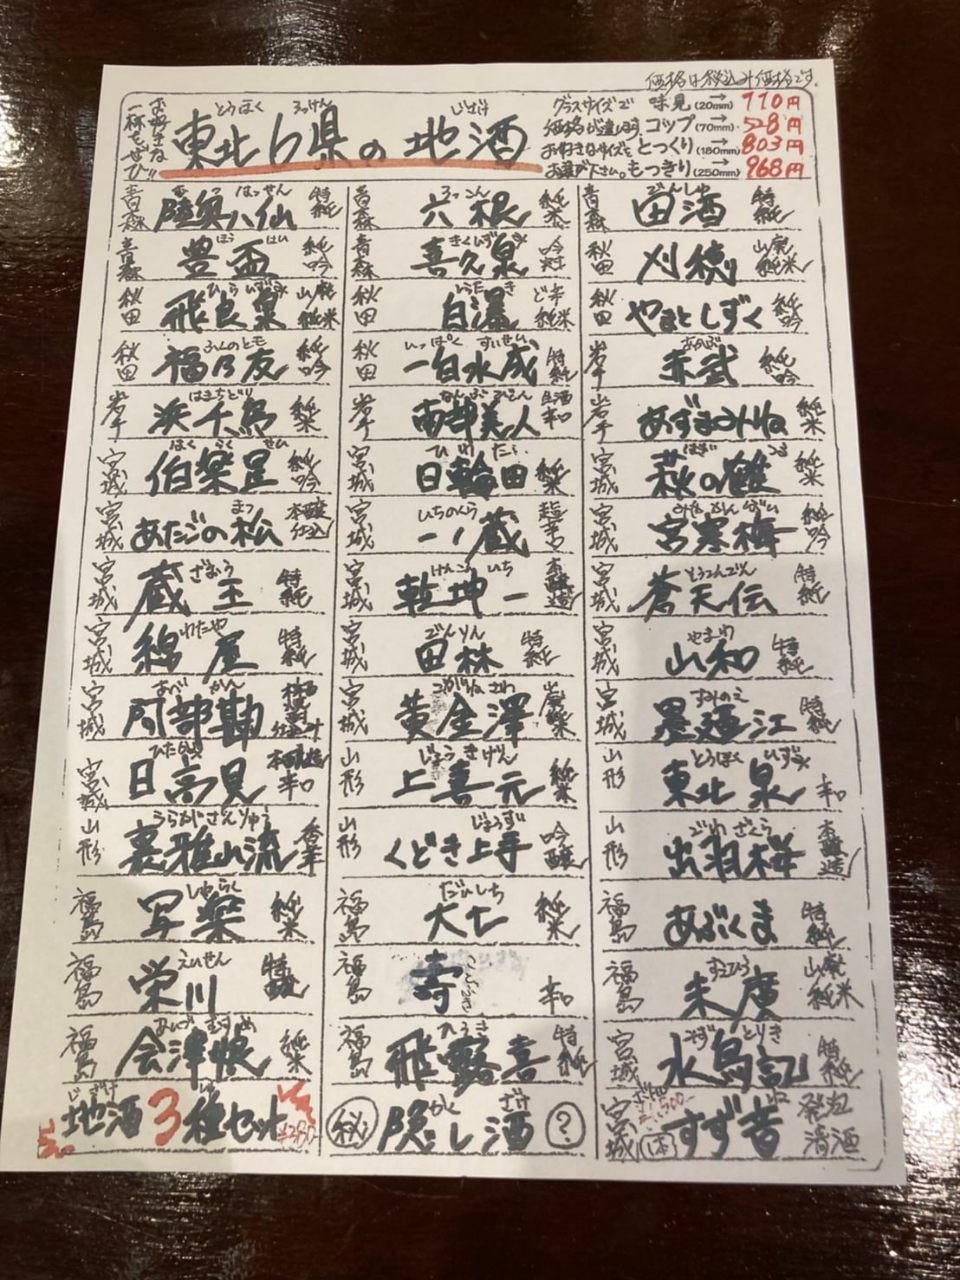 価格は税込み価格です。
お好きな
一杯をぜひ!!
とうほく ろっけん じざけ
東北6県の地酒
グラスサイズで
価格が違います。
お好きなサイズを
お選び下さい。
味見(20mm)→110円
コップ(70mm)→528円
とっくり(180mm)→803円
もっきり(250mm)→968円
青森 陸奥八仙 特純
青森 六根 純米
青森 田酒 特純
青森 豊盃 純吟
青森 喜久泉 吟
秋田 刈穂 山廃純米
秋田 飛良泉 山廃純米
秋田 白瀑 ど辛純米
秋田 やまとしずく 純吟
秋田 福乃友 純吟
秋田 一白水成 特純
岩手 赤武 純吟
岩手 浜千鳥 純米
岩手 南部美人 辛口
岩手 あずまみね 純米
宮城 伯楽星 純吟
宮城 日輪田 純米
宮城 萩の鶴 純米
宮城 あたごの松 本醸仕込
宮城 一ノ蔵 超辛口
宮城 宮寒梅 純吟
宮城 蔵王 特純
宮城 乾坤一 本醸造
宮城 蒼天伝 特純
宮城 綿屋 特純
宮城 田林 特純
宮城 山和 特純
宮城 阿部勘
宮城 黄金澤 山廃純米
宮城 墨廼江 特純
宮城 日高見 本醸造辛口
山形 上喜元 純米
山形 東北泉 辛口
山形 裏雅山流 香華
山形 くどき上手 吟醸
山形 出羽桜 本醸造
福島 写楽 純米
福島 大七 純米
福島 あぶくま 特純
福島 栄川 特醸
福島 寿 辛口
福島 末廣 山廃純米
福島 会津娘 純米
福島 飛露喜 特純
宮城 水鳥記 特純
地酒3種セット
㊙ 隠し酒 ?
宮城 すず音 発泡清酒